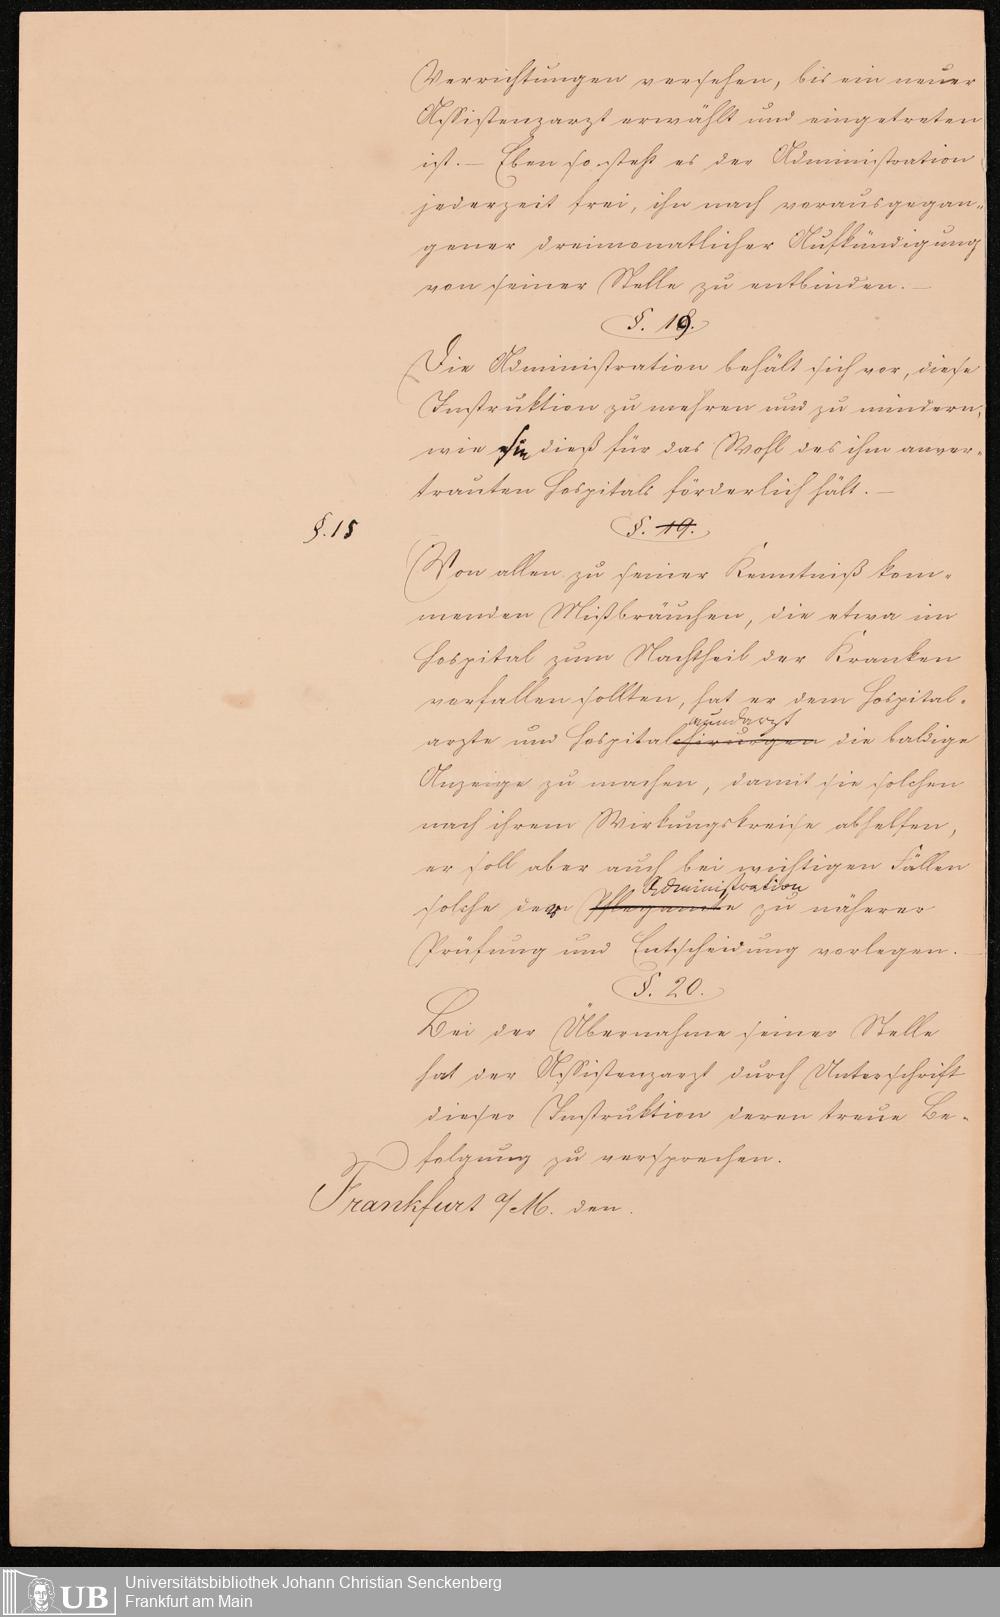 Verrichtungen versehen, bis ein neuer
Assistenzarzt erwählt und eingetreten
ist. – Eben so steht es der Administration
jederzeit frei, ihn nach vorausgegan-
gener dreimonatlicher Aufkündigung
von seiner Stelle zu entbinden. –
§. 19.
Die Administration behält sich vor, diese
Instruktion zu mehren und zu mindern,
wie sie dieß für das Wohl des ihm anver-
trauten Hospitals förderlich hält. –
§. 15
§. 19.
Von allen zu seiner Kenntniß kom-
menden Mißbräuchen, die etwa im
Hospital zum Nachtheil der Kranken
vorfallen sollten, hat er dem Hospital-
wundarzt
arzte und Hospitalchirurgen die baldige
Anzeige zu machen, damit sie solchen
nach ihrem Wirkungskreise abhelfen,
er soll aber auch bei wichtigen Fällen
Administration
solche der Pflegamte zu näherer
Prüfung und Entscheidung vorlegen. –
§. 20.
Bei der Übernahme seiner Stelle
hat der Assistenzarzt durch Unterschrift
dieser Instruktion deren treue Be-
folgung zu versprechen.
Frankfurt a/M. den.
UB
Universitätsbibliothek Johann Christian Senckenberg
Frankfurt am Main